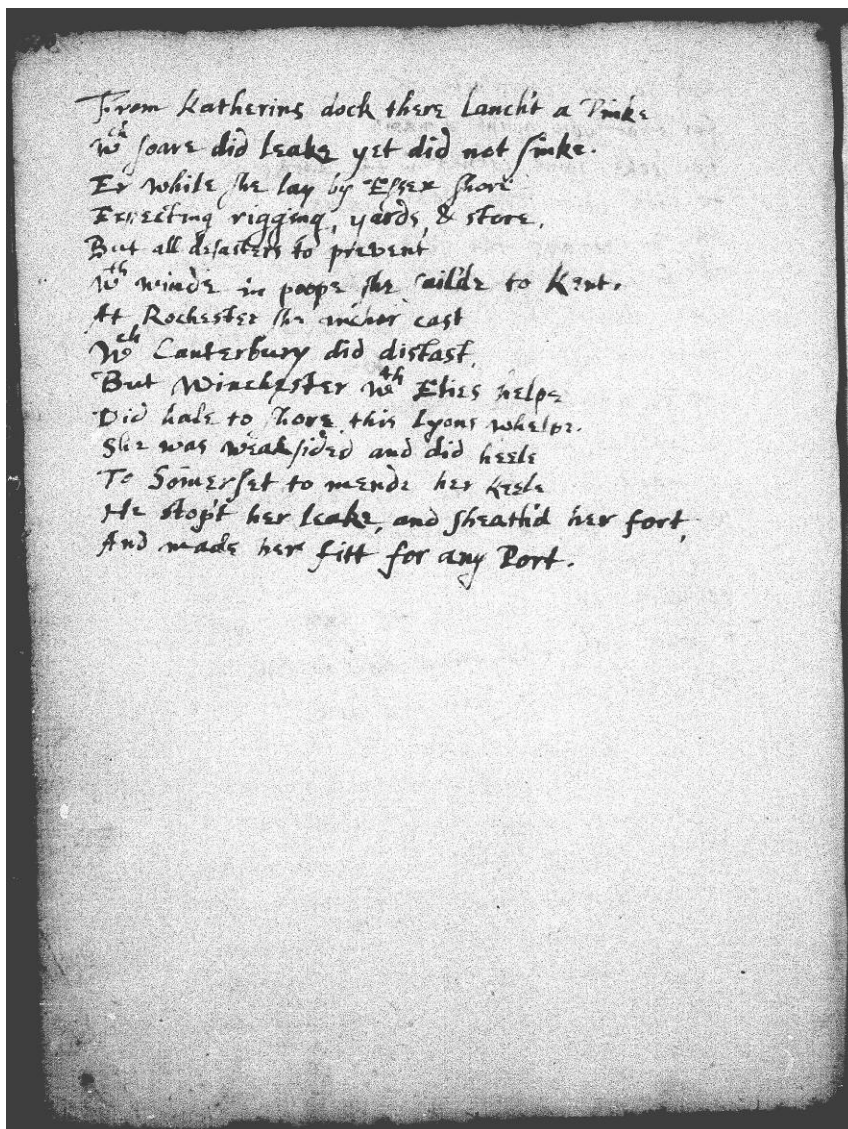 From Katherins dock there Lanch't a Pinke
Wch soare did leake yet did not sinke.
Er while she lay by Essex shore
Expecting rigging, yards, & store,
But all desasters to prevent
Wth winde in poope she sailde to Kent.
At Rochester she anchor cast
Wch Canterbury did distast,
But Winchester Wth Elies helpe
Did hale to shore this Lyons whelpe.
She was weaksided and did heele
To Somerset to mende her keele
He stop't her leake, and sheath'd her fort,
And made her fitt for any Port.